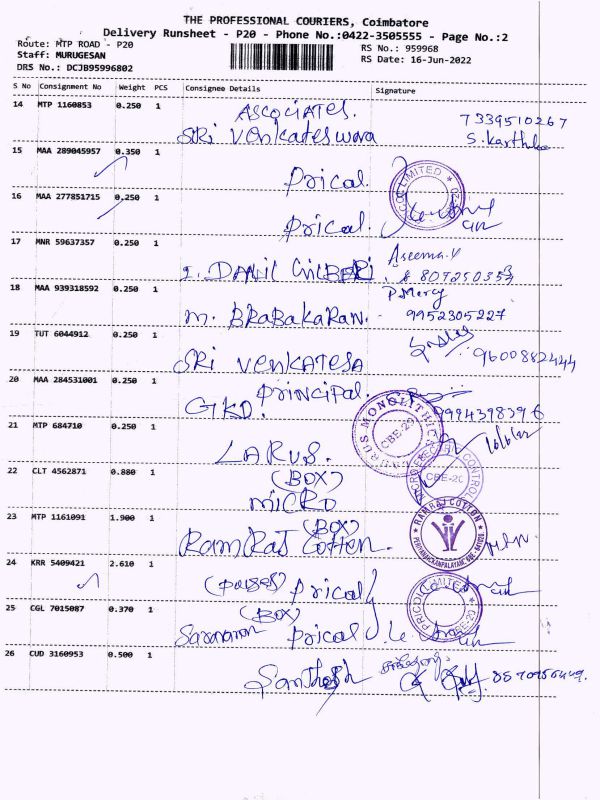 THE PROFESSIONAL COURIERS, Coimbatore
Delivery Runsheet - P20 - Phone No.:0422-3505555 - Page No.:2
Route: MTP ROAD - P20
Staff: MURUGESAN
DRS No.: DCJB95996802
RS No.: 959968
RS Date: 16-Jun-2022
S No Consignment No Weight PCS Consignee Details Signature
14 MTP 1160853 0.250 1 Associates. 7339510267
Sri Venkateswara S.Karthik
15 MAA 289045957 0.350 1 Prical.
16 MAA 277851715 0.250 1 Prical.
17 MNR 59637357 0.250 1 Aseema.V
DANIL 8072503553
18 MAA 939318592 0.250 1 P.Mercy
M. BRABAKARAN. 9952305227
19 TUT 6044912 0.250 1
SRi venkatesa 9600882444
20 MAA 284531001 0.250 1 principal.
GKD. 9994398396
21 MTP 684710 0.250 1 LARUS. 16/6/22
22 CLT 4562871 0.880 1 (BOX)
MICRO
23 MTP 1161091 1.900 1 (BOX)
RamRaj Cotton.
RAMRAJ COTTON
24 KRR 5409421 2.610 1 Prical
25 CGL 7015087 0.370 1 (BOX)
Saravanan prical
26 CUD 3160953 0.500 1
Santhosh